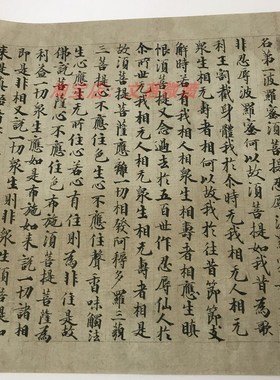 非忍辱波羅蜜何以故須菩提如我昔為歌
利王割截身體我於尒時无我相无人相无
眾生相无壽者相何以故我於往昔節節支
解時若有我相人相眾生相壽者相應生瞋
恨須菩提又念過去於五百世作忍辱仙人於
尒所世无我相无人相无眾生相无壽者相是
故須菩提菩薩應離一切相發阿耨多羅三藐
三菩提心不應住色生心不應住聲香味觸法
生心應生无所住心若心有住則為非住是故
佛說菩薩心不應住色布施須菩提菩薩為
利益一切眾生應如是布施如来說一切諸相
即是非相又說一切眾生則非眾生須菩提如
来是真語者